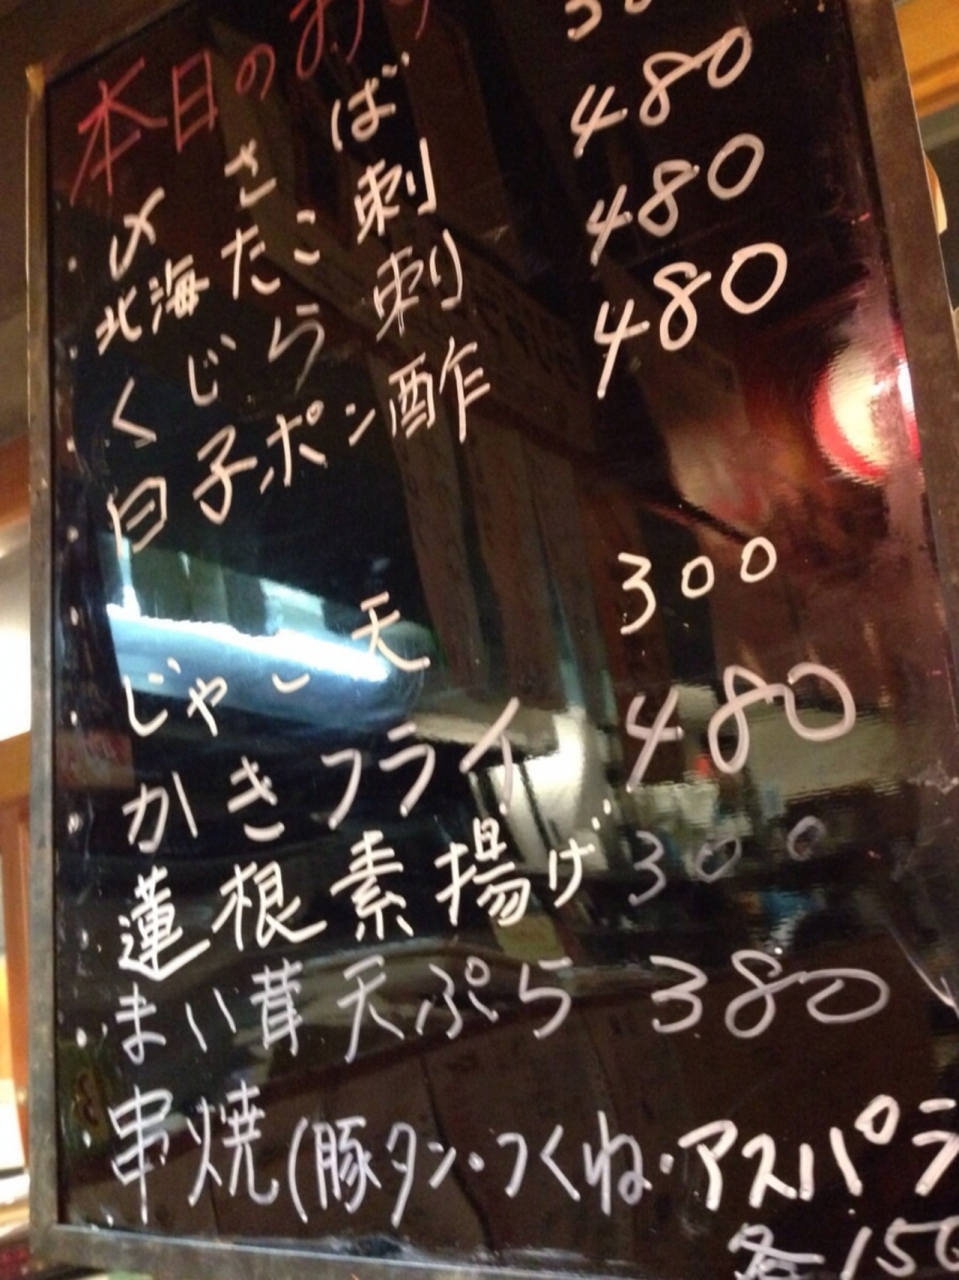 本日のおす
〆さば 300
北海たこ刺 480
くじら刺 480
白子ポン酢 480
じゃこ天 300
かきフライ 480
蓮根素揚げ 300
まい茸天ぷら 380
串焼(豚タン・つくね・アスパラ
各150